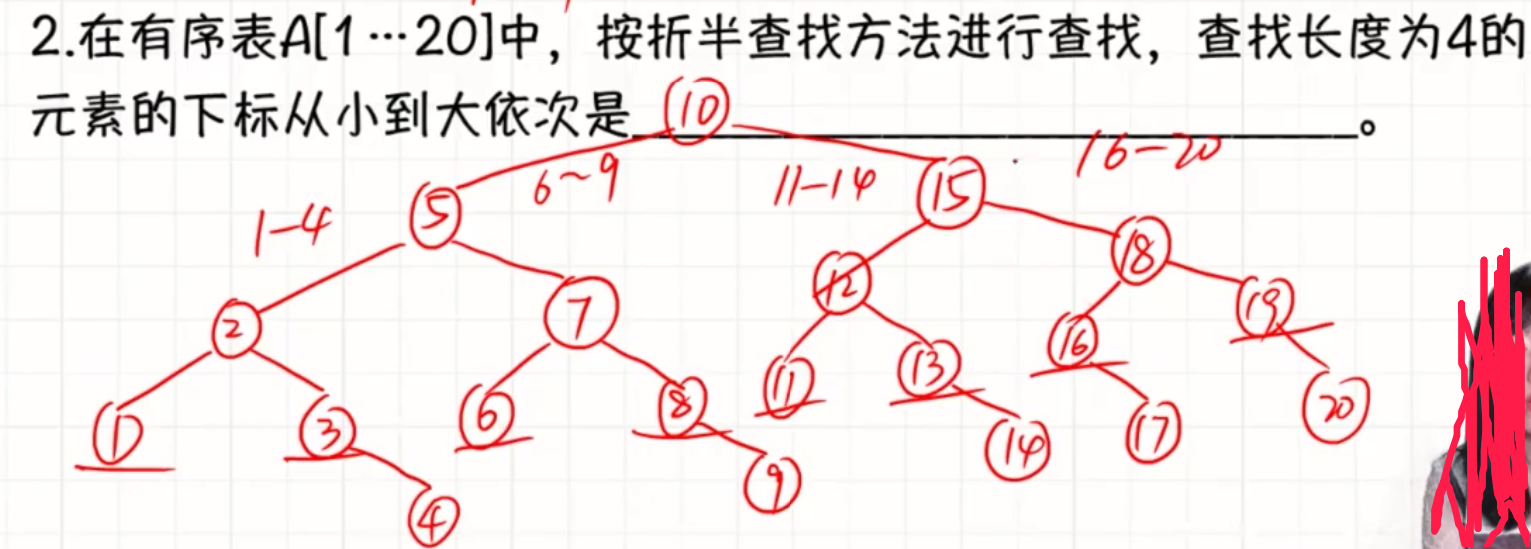 2.在有序表A[1…20]中，按折半查找方法进行查找，查找长度为4的
元素的下标从小到大依次是____________________。
10
16-20
6~9
11-14
15
1-4
5
18
2
7
12
19
16
1
3
6
8
11
13
20
4
9
14
17